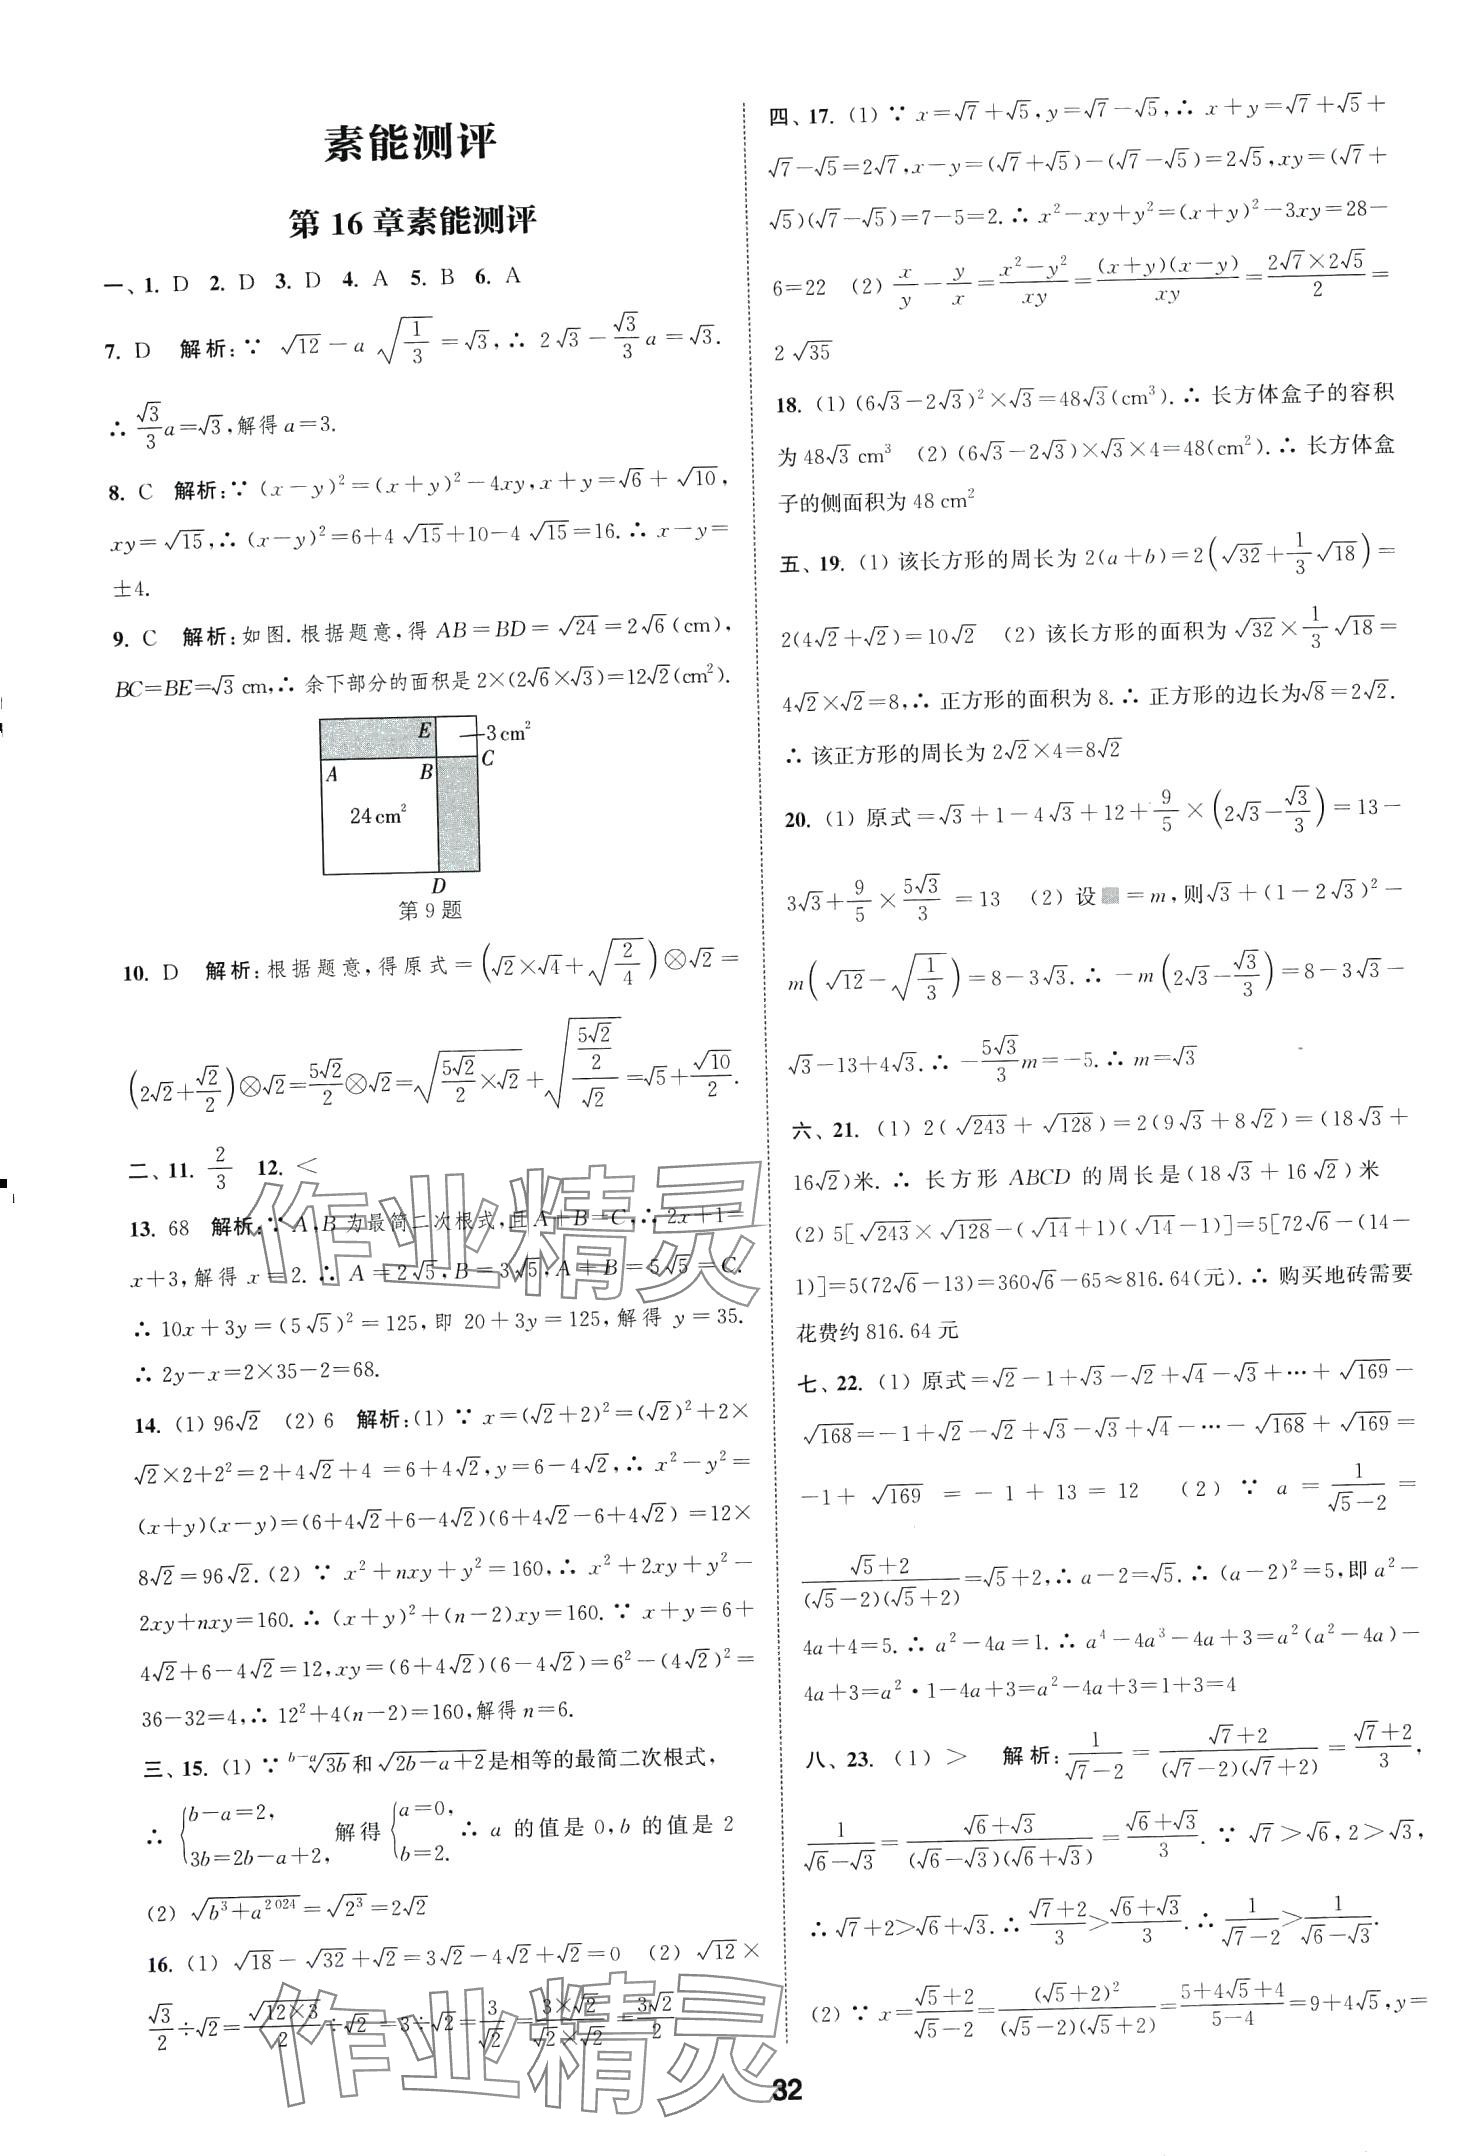 素能测评
第 16 章素能测评
一、1. D 2. D 3. D 4. A 5. B 6. A
7. D 解析:∵ √12－a√(1/3)＝√3,∴ 2√3－(√3/3)a＝√3.
∴ (√3/3)a＝√3,解得 a＝3.
8. C 解析:∵ (x－y)²＝(x＋y)²－4xy,x＋y＝√6＋√10,
xy＝√15,∴ (x－y)²＝6＋4√15＋10－4√15＝16.∴ x－y＝
±4.
9. C 解析:如图.根据题意,得 AB＝BD＝√24＝2√6(cm),
BC＝BE＝√3 cm,∴ 余下部分的面积是 2×(2√6×√3)＝12√2(cm²).
E
3 cm²
A
B
C
24 cm²
D
第 9 题
10. D 解析:根据题意,得原式＝(√2×√4＋√(2/4))⊗√2＝
(2√2＋√2/2)⊗√2＝(5√2/2)⊗√2＝√((5√2/2)×√2)＋√((5√2/2)/√2)＝√5＋√10/2.
二、11. 2/3 12. ＜
13. 68 解析:∵ A,B 为最简二次根式,且 A＋B＝C,∴ 2x＋1＝
x＋3,解得 x＝2.∴ A＝2√5,B＝3√5,A＋B＝5√5＝C.
∴ 10x＋3y＝(5√5)²＝125,即 20＋3y＝125,解得 y＝35.
∴ 2y－x＝2×35－2＝68.
14. (1) 96√2 (2) 6 解析:(1) ∵ x＝(√2＋2)²＝(√2)²＋2×
√2×2＋2²＝2＋4√2＋4＝6＋4√2,y＝6－4√2,∴ x²－y²＝
(x＋y)(x－y)＝(6＋4√2＋6－4√2)(6＋4√2－6＋4√2)＝12×
8√2＝96√2.(2) ∵ x²＋nxy＋y²＝160,∴ x²＋2xy＋y²－
2xy＋nxy＝160.∴ (x＋y)²＋(n－2)xy＝160.∵ x＋y＝6＋
4√2＋6－4√2＝12,xy＝(6＋4√2)(6－4√2)＝6²－(4√2)²＝
36－32＝4,∴ 12²＋4(n－2)＝160,解得 n＝6.
三、15. (1) ∵ ᵇ⁻ᵃ√3b和√(2b－a＋2)是相等的最简二次根式,
∴ {b－a＝2, 3b＝2b－a＋2, 解得 {a＝0, b＝2. ∴ a 的值是 0,b 的值是 2
(2) √(b³＋a²⁰²⁴)＝√2³＝2√2
16. (1) √18－√32＋√2＝3√2－4√2＋√2＝0 (2) √12×
√3/2÷√2＝√(12×3)/2÷√2＝3÷√2＝3/√2＝(3×√2)/(√2×√2)＝3√2/2
四、17. (1) ∵ x＝√7＋√5,y＝√7－√5,∴ x＋y＝√7＋√5＋
√7－√5＝2√7,x－y＝(√7＋√5)－(√7－√5)＝2√5,xy＝(√7＋
√5)(√7－√5)＝7－5＝2.∴ x²－xy＋y²＝(x＋y)²－3xy＝28－
6＝22 (2) x/y－y/x＝(x²－y²)/xy＝(x＋y)(x－y)/xy＝(2√7×2√5)/2＝
2√35
18. (1) (6√3－2√3)²×√3＝48√3(cm³).∴ 长方体盒子的容积
为 48√3 cm³ (2) (6√3－2√3)×√3×4＝48(cm²).∴ 长方体盒
子的侧面积为 48 cm²
五、19. (1) 该长方形的周长为 2(a＋b)＝2(√32＋(1/3)√18)＝
2(4√2＋√2)＝10√2 (2) 该长方形的面积为 √32×(1/3)√18＝
4√2×√2＝8,∴ 正方形的面积为 8.∴ 正方形的边长为√8＝2√2.
∴ 该正方形的周长为 2√2×4＝8√2
20. (1) 原式＝√3＋1－4√3＋12＋9/5×(2√3－√3/3)＝13－
3√3＋9/5×5√3/3＝13 (2) 设▒＝m,则√3＋(1－2√3)²－
m(√12－√(1/3))＝8－3√3.∴ －m(2√3－√3/3)＝8－3√3－
√3－13＋4√3.∴ －(5√3/3)m＝－5.∴ m＝√3
六、21. (1) 2(√243＋√128)＝2(9√3＋8√2)＝(18√3＋
16√2)米.∴ 长方形 ABCD 的周长是(18√3＋16√2)米
(2) 5[√243×√128－(√14＋1)(√14－1)]＝5[72√6－(14－
1)]＝5(72√6－13)＝360√6－65≈816.64(元).∴ 购买地砖需要
花费约 816.64 元
七、22. (1) 原式＝√2－1＋√3－√2＋√4－√3＋…＋√169－
√168＝－1＋√2－√2＋√3－√3＋√4－…－√168＋√169＝
－1＋√169＝－1＋13＝12 (2) ∵ a＝1/(√5－2)＝
(√5＋2)/((√5－2)(√5＋2))＝√5＋2,∴ a－2＝√5.∴ (a－2)²＝5,即 a²－
4a＋4＝5.∴ a²－4a＝1.∴ a⁴－4a³－4a＋3＝a²(a²－4a)－
4a＋3＝a²·1－4a＋3＝a²－4a＋3＝1＋3＝4
八、23. (1) ＞ 解析:1/(√7－2)＝(√7＋2)/((√7－2)(√7＋2))＝(√7＋2)/3,
1/(√6－√3)＝(√6＋√3)/((√6－√3)(√6＋√3))＝(√6＋√3)/3.∵ √7＞√6,2＞√3,
∴ √7＋2＞√6＋√3.∴ (√7＋2)/3＞(√6＋√3)/3.∴ 1/(√7－2)＞1/(√6－√3).
(2) ∵ x＝(√5＋2)/(√5－2)＝(√5＋2)²/((√5－2)(√5＋2))＝(5＋4√5＋4)/(5－4)＝9＋4√5,y＝
32
作业精灵
作业精灵